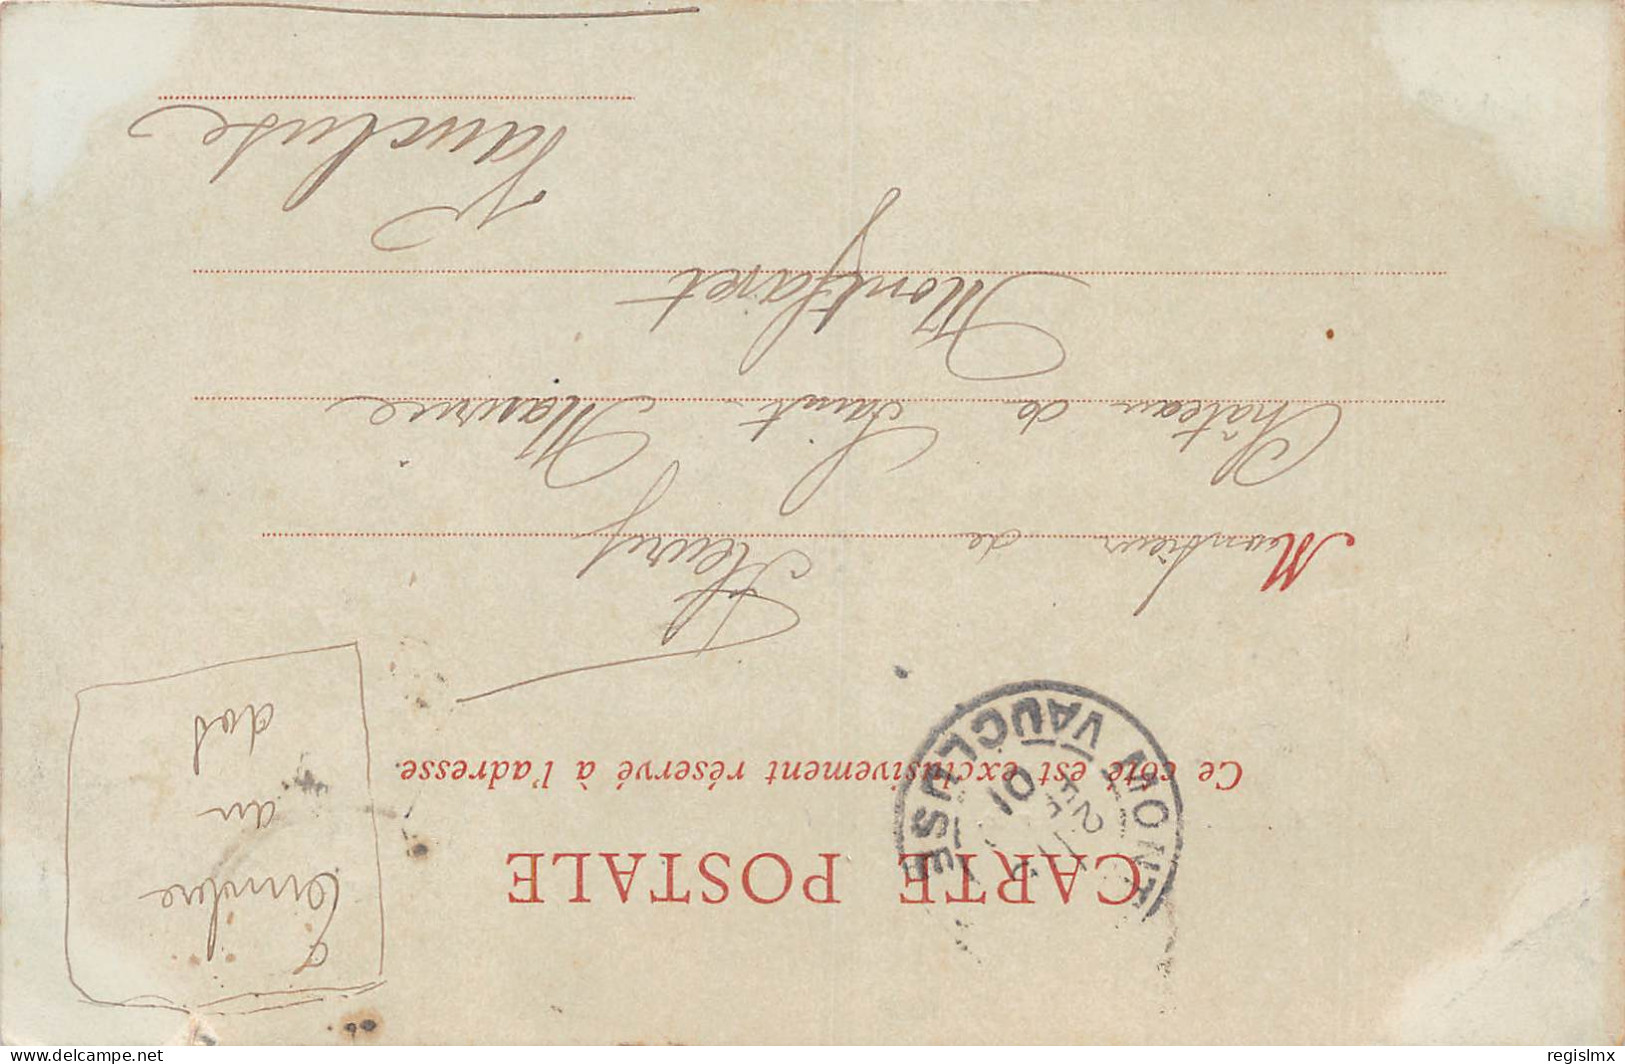 CARTE POSTALE
Ce côté est exclusivement réservé à l'adresse.
Timbre
au
dos
MONT
VAUCLUSE
2
FE
01
Monsieur de Fleury
Château de Saint Maurice
Montfavet
Vaucluse
delcampe.net
regislmx